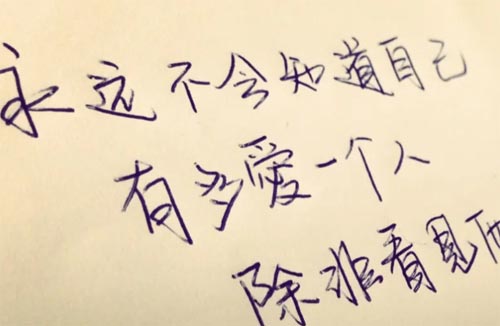 永远不会知道自己
有多爱一个人
除非看见